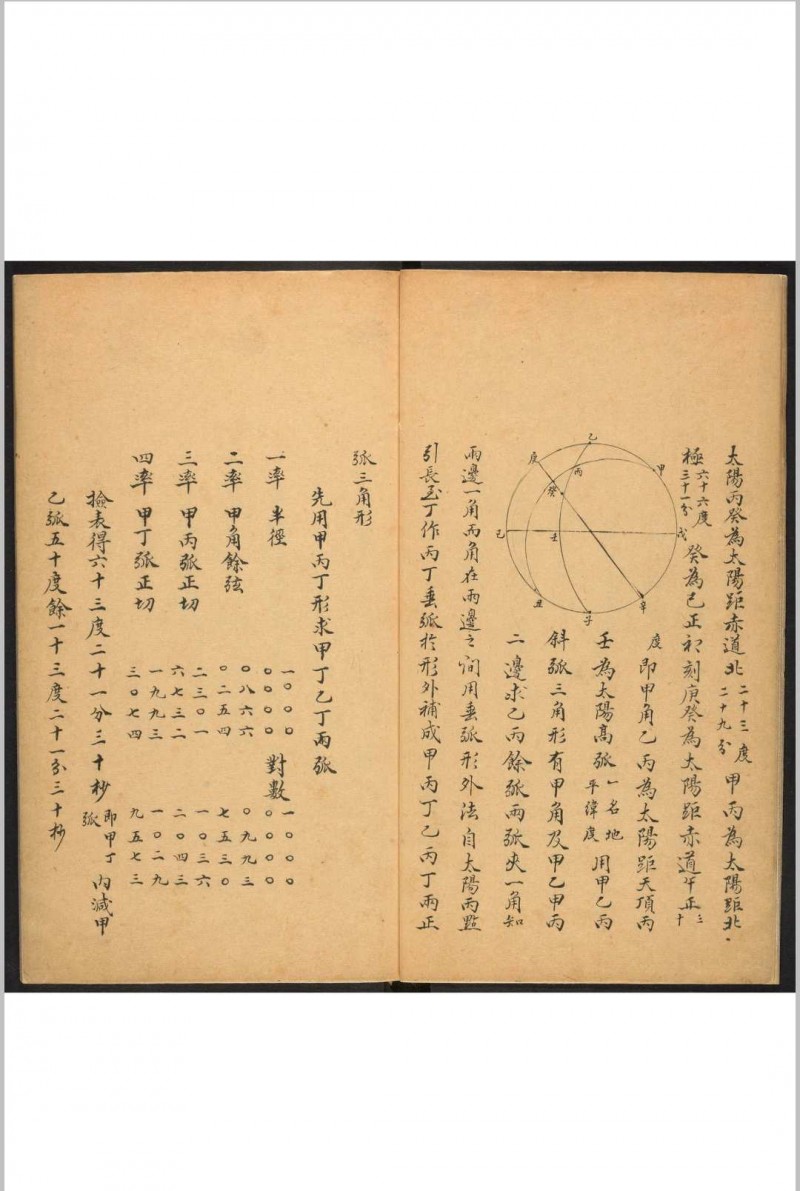 太陽丙癸為太陽距赤道北二十三度二十九分甲丙為太陽距北
極六十六度三十一分癸為巳正初刻庚癸為太陽距赤道午正三十
度即甲角乙丙為太陽距天頂丙
壬為太陽高弧一名地平緯度用甲乙丙
斜弧三角形有甲角及甲乙甲丙
二邊求乙丙餘弧兩弧夾一角知
兩邊一角而角在兩邊之間用垂弧形外法自太陽丙點
引長至丁作丙丁垂弧於形外補成甲丙丁乙丙丁兩正
乙
甲
戊
辛
子
丑
己
庚
丙
癸
壬
弧三角形
先用甲丙丁形求甲丁乙丁兩弧
一率 半徑 一〇〇〇〇〇〇〇 對數 一〇〇〇〇〇〇〇
二率 甲角餘弦 〇八六六〇二五四 〇九九三七五三〇
三率 甲丙弧正切 二三〇一六七三二 一〇三六二〇四三
四率 甲丁弧正切 一九九三三〇七四 一〇二九九五七三
檢表得六十三度二十一分三十秒即甲丁弧內減甲
乙弧五十度餘一十三度二十一分三十秒